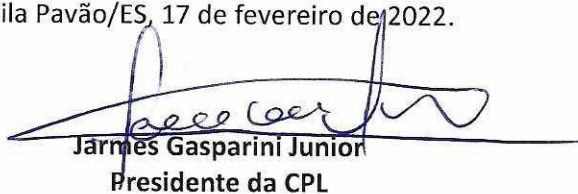 ila Pavão/ES, 17 de fevereiro de 2022.
Jarmes Gasparini Junior
Presidente da CPL